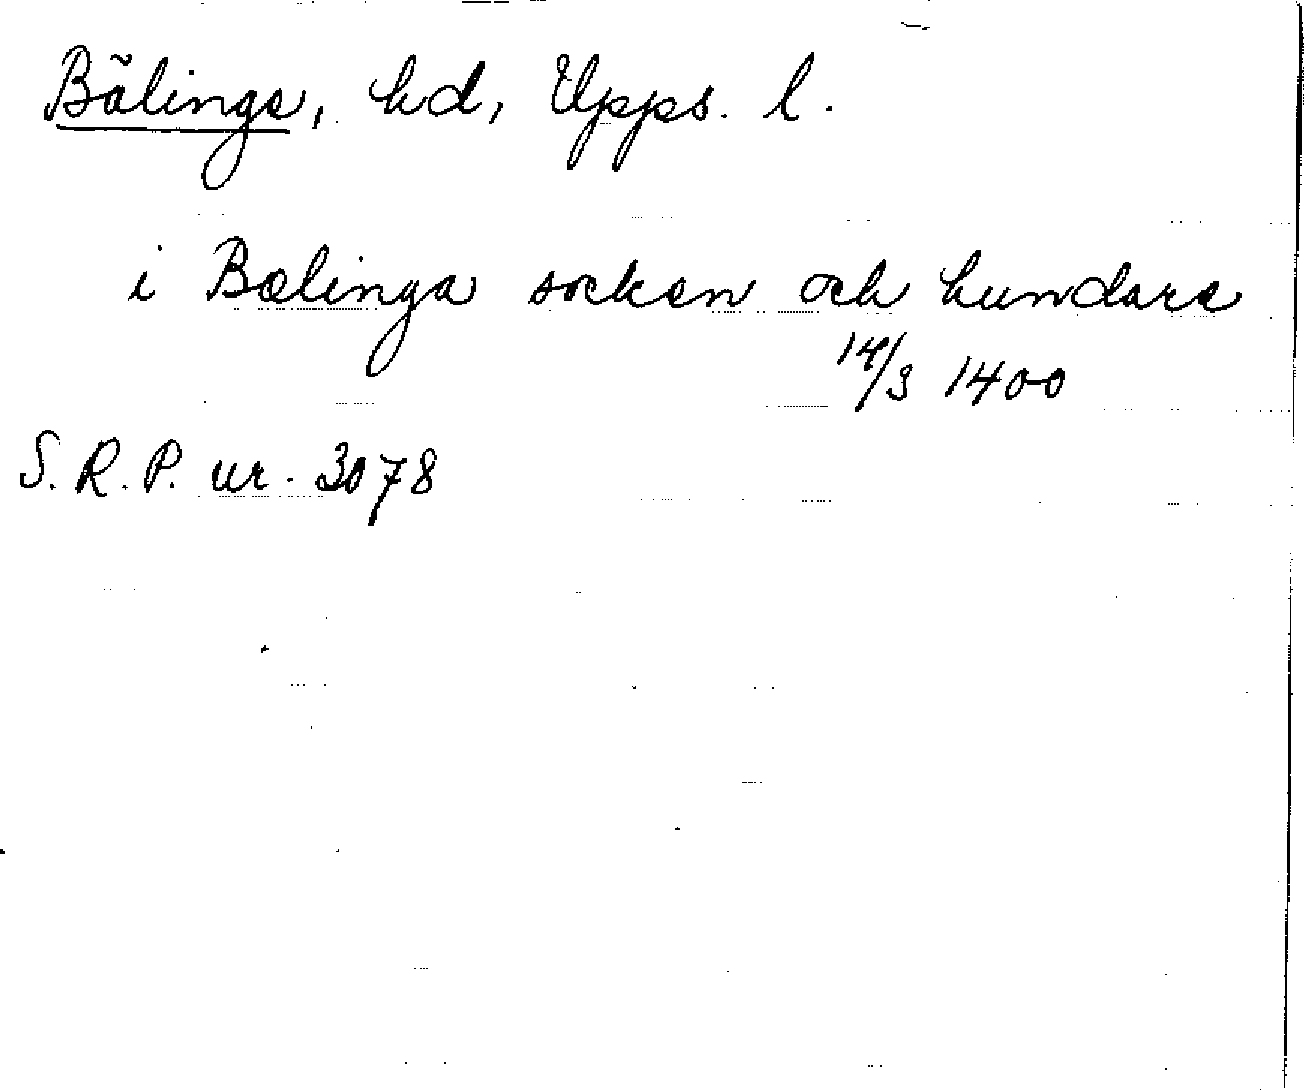 Bälings, hd, Upps. l.
i Bælinga socken och hundare
14/3 1400
S. R. P. nr. 3078